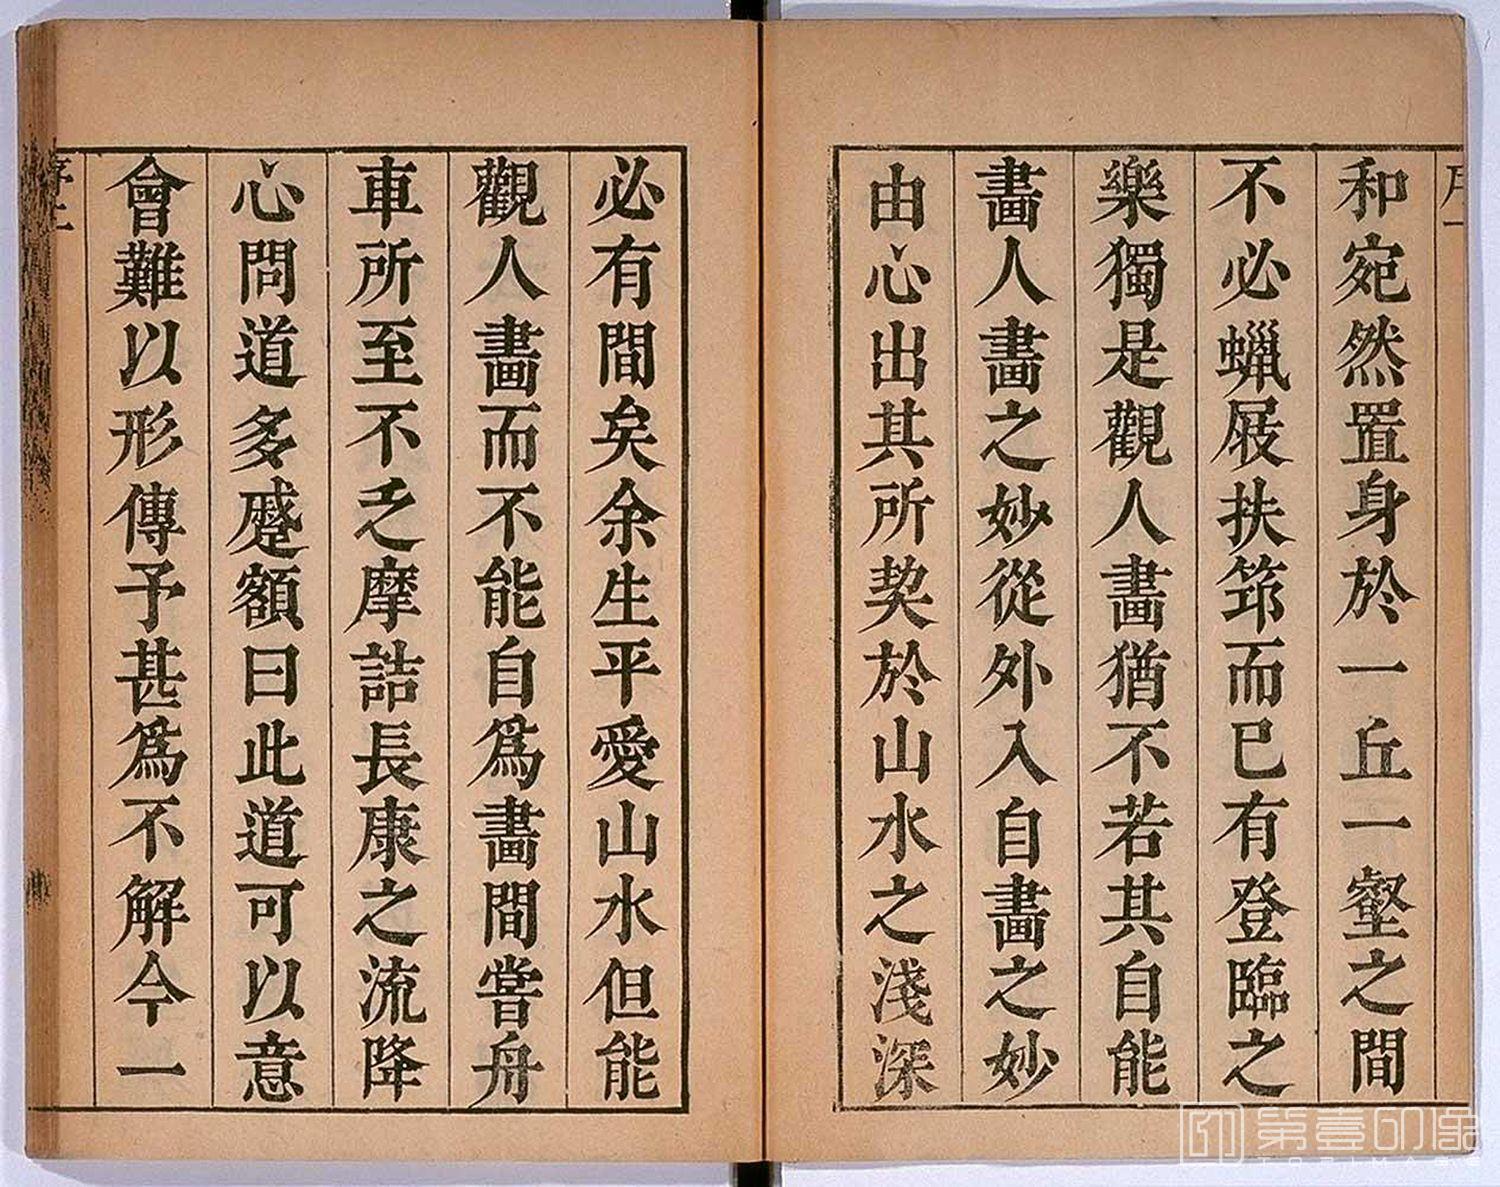 和宛然置身於一丘一壑之間
不必蠟屐扶筇而已有登臨之
樂獨是觀人畫猶不若其自能
畫人畫之妙從外入自畫之妙
由心出其所契於山水之淺深
必有間矣余生平愛山水但能
觀人畫而不能自爲畫間嘗舟
車所至不乏摩詰長康之流降
心問道多蹙額曰此道可以意
會難以形傳予甚爲不解今一
第壹印像
TOPIMAGE